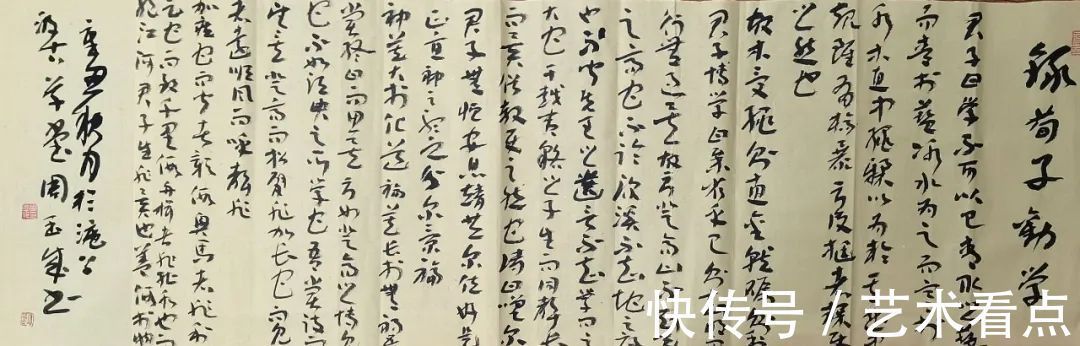 録荀子勸学
君子曰学不可以已青
而青於藍冰水为之而寒於
水木直中绳輮以为輪其曲
規雖有槁暴不復挺者輮使
之然也
故木受绳則直金就砺則利
君子博学日参省乎己則知
行無過矣故不登高山不知
之高也不临深溪不知地之厚
也不闻先王之遺言不知学问之
大也干越夷貉之子生而同聲長
而异俗教使之然也诗曰嗟尔
君子無恒安息靖共尔位好是
正直神之听之介尔景福
神莫大於化道福莫長於無祸
吾嘗終日而思矣
也不如須臾之所学也吾嘗跂而
望矣不如登高之博見
登高而招臂非加長也而見
者遠順風而呼聲非
加疾也而聞者彰假輿馬者非利
足也而致千里假舟楫者非能水也而
絕江河君子生非異也善假於物
辛丑秋月於滬上
草堂周玉成书
快传号 / 艺术看点